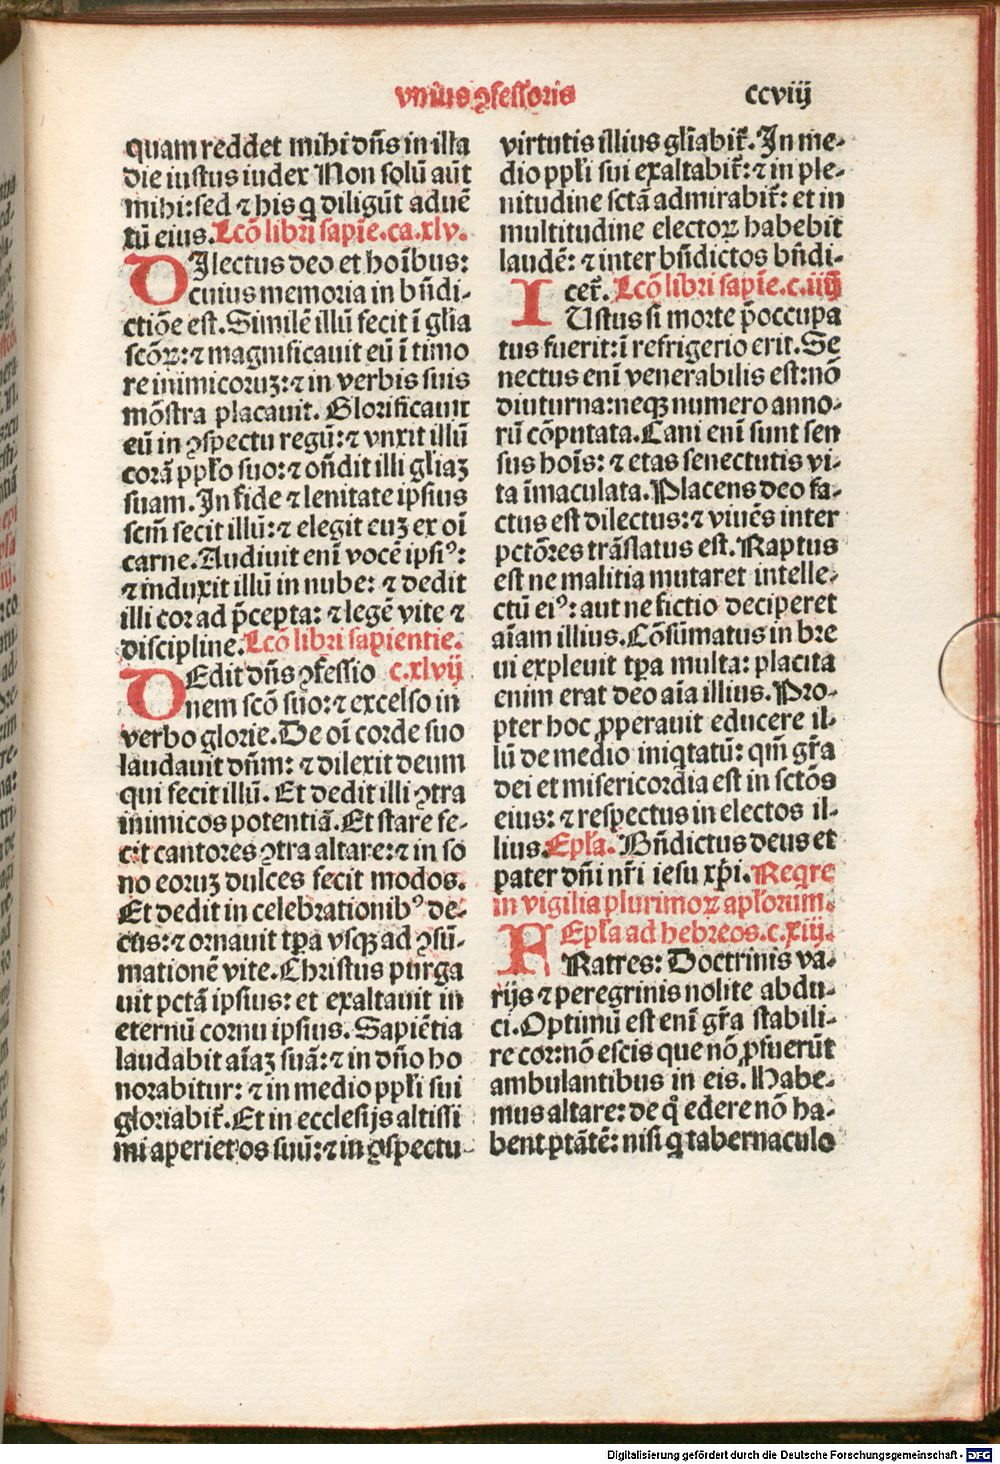 vniꝰ ꝯfessoris
ccviij
quam reddet mihi dñs in illa
die iustus iudex Non solū aūt
mihi: sed ⁊ his q̄ diligūt aduē
tū eius. Lcō libri sapīe. ca. xlv.
DIlectus deo et hoībus:
cuius memoria in bñdi-
ctiōe est. Similē illū fecit ī gl̄ia
scōꝝ: ⁊ magnificauit eū ī timo
re inimicoruꝫ: ⁊ in verbis suis
mōstra placauit. Glorificauit
eū in ꝯspectu regū: ⁊ vnxit illū
corā ppl̄o suo: ⁊ oñdit illi gl̄iaꝫ
suam. In fide ⁊ lenitate ipsius
scm̄ fecit illū: ⁊ elegit euꝫ ex oī
carne. Audiuit enī vocē ipsiꝰ:
⁊ induxit illū in nube: ⁊ dedit
illi cor ad p̄cepta: ⁊ legē vite ⁊
discipline. Lcō libri sapientie.
DEdit dñs ꝯfessio c. xlvij
nem scō suo: ⁊ excelso in
verbo glorie. De oī corde suo
laudauit dñm: ⁊ dilexit deum
qui fecit illū. Et dedit illi ꝯtra
inimicos potentiā. Et stare fe-
cit cantores ꝯtra altare: ⁊ in so
no eoruꝫ dulces fecit modos.
Et dedit in celebrationibꝰ de-
cus: ⁊ ornauit tp̄a vsqꝫ ad ꝯsū-
mationē vite. Christus purga
uit pctā ipsius: et exaltauit in
eternū cornu ipsius. Sapiētia
laudabit aīaꝫ suā: ⁊ in dño ho
norabitur: ⁊ in medio ppl̄i sui
gloriabit᷑. Et in ecclesijs altissi
mi aperiet os suū: ⁊ in ꝯspectu
virtutis illius gl̄iabit᷑. In me-
dio ppl̄i sui exaltabit᷑: ⁊ in ple-
nitudine sctā admirabit᷑: et in
multitudine electoꝝ habebit
laudē: ⁊ inter bñdictos bñdi-
cet᷑. Lcō libri sapīe. c. iiij
IUstus si morte p̄occupa
tus fuerit: ī refrigerio erit. Se
nectus enī venerabilis est: nō
diuturna: neqꝫ numero anno-
rū cōputata. Cani enī sunt sen
sus hoīs: ⁊ etas senectutis vi-
ta īmaculata. Placens deo fa-
ctus est dilectus: ⁊ viuēs inter
pctōres trāslatus est. Raptus
est ne malitia mutaret intelle-
ctū eiꝰ: aut ne fictio deciperet
aīam illius. Cōsūmatus in bre
ui expleuit tp̄a multa: placita
enim erat deo aīa illius. Pro-
pter hoc ꝓperauit educere il-
lū de medio iniqtatū: qm̄ gr̄a
dei et misericordia est in sctōs
eius: ⁊ respectus in electos il-
lius. Epl̄a. Bñdictus deus et
pater dñi nr̄i iesu xp̄i. Reqre
in vigilia plurimoꝝ apl̄orum.
Epl̄a ad hebreos. c. xiij.
FRatres: Doctrinis va-
rijs ⁊ peregrinis nolite abdu-
ci. Optimū est enī gr̄a stabili-
re cor: nō escis que nō ꝓfuerūt
ambulantibus in eis. Habe-
mus altare: de q̊ edere nō ha-
bent ptātē: nisi q̄ tabernaculo
Digitalisierung gefördert durch die Deutsche Forschungsgemeinschaft - DFG